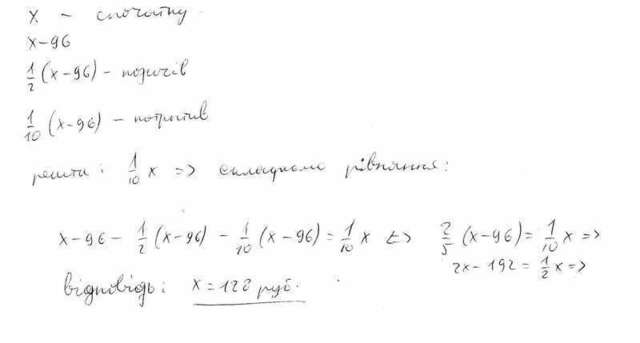 x – спочатку
x–96
1/2 (x–96) – позичів
1/10 (x–96) – потратив
решта: 1/10 x => складаємо рівняння:
x–96– 1/2 (x–96) – 1/10 (x–96) = 1/10 x <=> 2/5 (x–96) = 1/10 x =>
2x – 192 = 1/2 x =>
Відповідь: x = 128 руб.